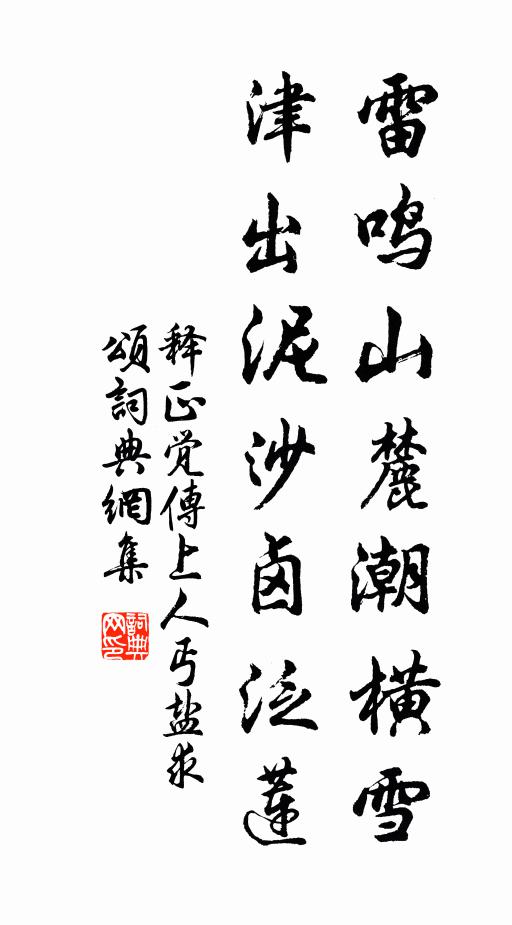 雷鸣山麓潮横雪
津出泥沙卤泛莲
释正觉傳上人丐盐求
頌詞典網集
詞典
网印